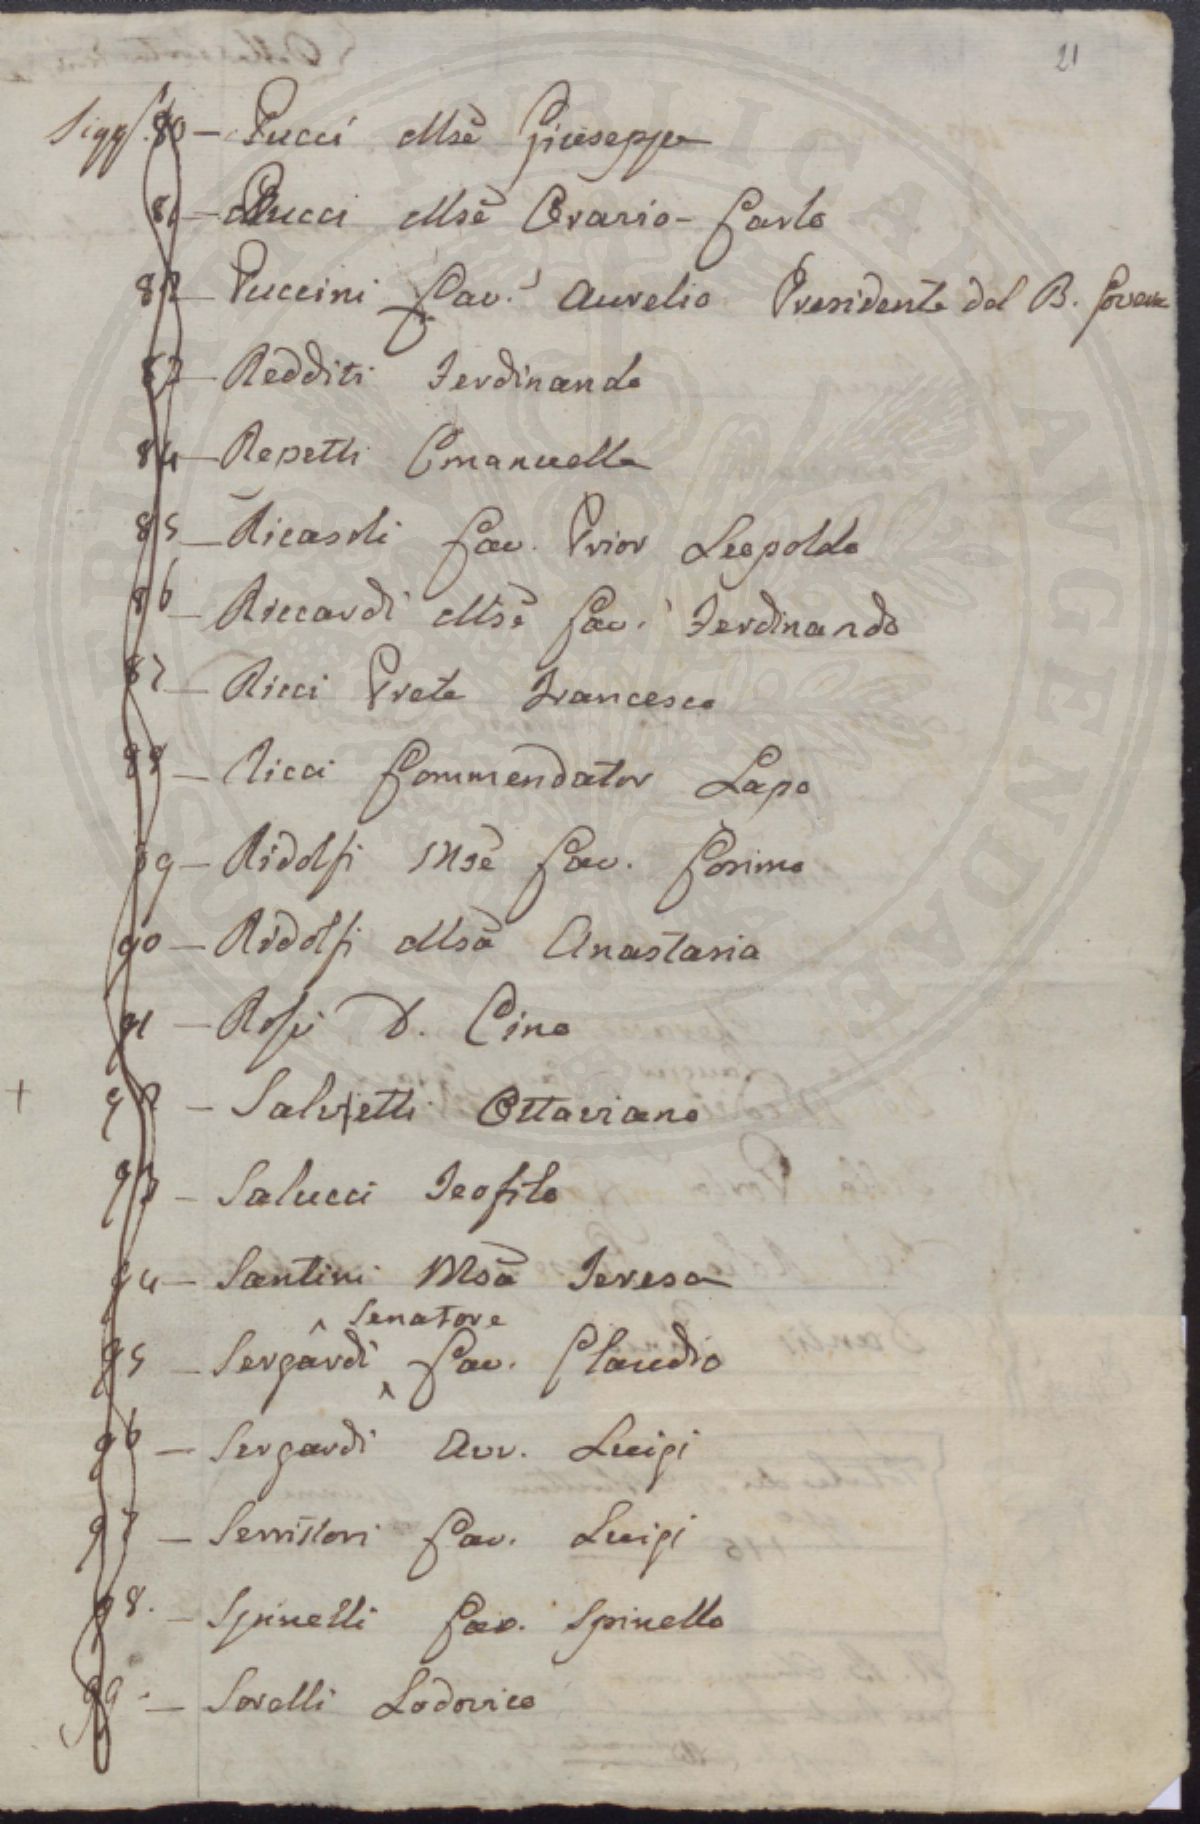 21
Sigg.ri 80 – Pucci Mse Giuseppe
81 – Pucci Mse Orazio – Carlo
82 – Puccini Cav. Aurelio Presidente del B. Govern
83 – Redditi Ferdinando
84 – Repetti Emanuelle
85 – Ricasoli Cav. Prior Leopoldo
86 – Riccardi Mse Cav. Ferdinando
87 – Ricci Prete Francesco
88 – Ricci Commendator Lapo
89 – Ridolfi Mse Cav. Cosimo
90 – Ridolfi Msa Anastasia
91 – Rosi D. Cino
+ 92 – Salvetti Ottaviano
93 – Salucci Teofilo
94 – Santini Msa Teresa
Senatore
95 – Sergardi Cav. Claudio
96 – Sergardi Avv. Luigi
97 – Serristori Cav. Luigi
98. – Spinelli Cav. Spinello
99. – Sorelli Lodovico